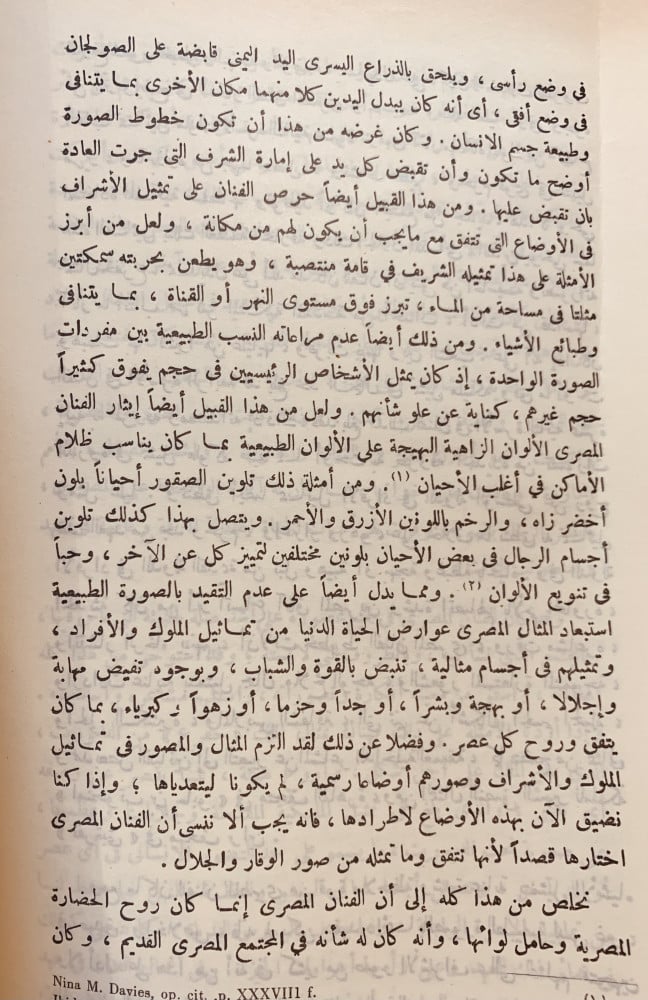 فى وضع رأسى ، ويلحق بالذراع اليسرى اليد اليمنى قابضة على الصولجان
فى وضع أفقى ، أى أنه كان يبدل اليدين كلا منهما مكان الأخرى بما يتنافى
وطبيعة جسم الانسان . وكان غرضه من هذا أن تكون خطوط الصورة
أوضح ما تكون وأن تقبض كل يد على إمارة الشرف التى جرت العادة
بان تقبض عليها . ومن هذا القبيل أيضاً حرص الفنان على تمثيل الأشراف
فى الأوضاع التى تتفق مع مايجب أن يكون لهم من مكانة ، ولعل من أبرز
الأمثلة على هذا تمثيله الشريف في قامة منتصبة ، وهو يطعن بحربته سمكتين
مثلتا فى مساحة من الماء ، تبرز فوق مستوى النهر أو القناة ، بما يتنافى
وطبائع الأشياء . ومن ذلك أيضاً عدم مراعاته النسب الطبيعية بين مفردات
الصورة الواحدة ، إذ كان يمثل الأشخاص الرئيسيين فى حجم يفوق كثيراً
حجم غيرهم ، كناية عن علو شأنهم . ولعل من هذا القبيل أيضاً إيثار الفنان
المصرى الألوان الزاهية البهيجة على الألوان الطبيعية بما كان يناسب ظلام
الأماكن في أغلب الأحيان (١) . ومن أمثلة ذلك تلوين الصقور أحياناً بلون
أخضر زاه ، والرخم باللونين الأزرق والأحمر . ويتصل بهذا كذلك تلوين
أجسام الرجال فى بعض الأحيان بلونين مختلفين لتمييز كل عن الآخر ، وحباً
فى تنويع الألوان (٢) . ومما يدل أيضاً على عدم التقيد بالصورة الطبيعية
استبعاد المثال المصرى عوارض الحياة الدنيا من تماثيل الملوك والأفراد ،
وتمثيلهم فى أجسام مثالية ، تنبض بالقوة والشباب ، وبوجوه تفيض مهابة
وإجلالا ، أو بهجة وبشراً ، أو جداً وحزما ، أو زهواً وكبرياء ، بما كان
يتفق وروح كل عصر . وفضلا عن ذلك لقد التزم المثال والمصور فى تماثيل
الملوك والأشراف وصورهم أوضاعا رسمية ، لم يكونا ليتعدياها ؛ وإذا كنا
نضيق الآن بهذه الأوضاع لاطرادها ، فانه يجب ألا ننسى أن الفنان المصرى
اختارها قصداً لأنها تتفق وما تمثله من صور الوقار والجلال .
نخلص من هذا كله إلى أن الفنان المصرى إنما كان روح الحضارة
المصرية وحامل لوائها ، وأنه كان له شأنه في المجتمع المصرى القديم ، وكان
Nina M. Davies, op. cit. ,p. XXXVII1 f.